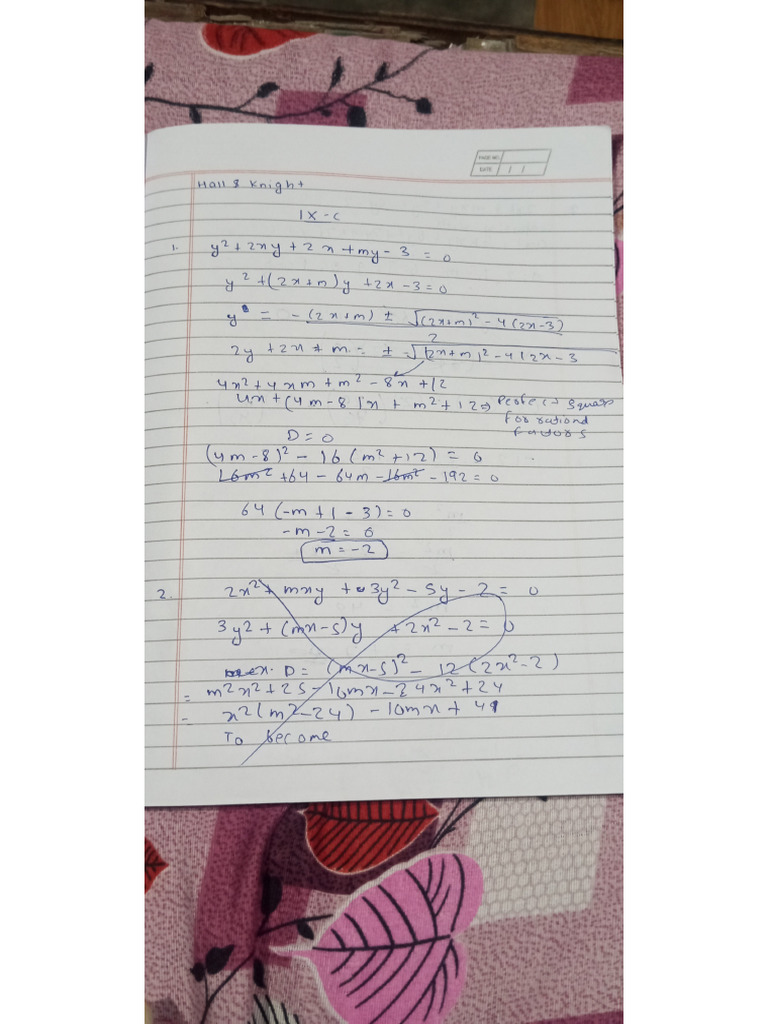 PAGE NO.
DATE / /
Hall & Knight
IX-C
1. y² + 2xy + 2x + my - 3 = 0
y² + (2x+m)y + 2x - 3 = 0
y = -(2x+m) ± √(2x+m)² - 4(2x-3)
2
2y + 2x + m = ± √(2x+m)² - 4(2x-3
4x² + 4xm + m² - 8x + 12
4x + (4m-8)x + m² + 12 => Perfect square
for rational
factors
D = 0
(4m-8)² - 16(m²+12) = 0
16m² + 64 - 64m - 16m² - 192 = 0
64(-m+1-3) = 0
-m-2 = 0
m = -2
2. 2x² + mxy + 3y² - 5y - 2 = 0
3y² + (mx-5)y + 2x² - 2 = 0
D = (mx-5)² - 12(2x²-2)
= m²x² + 25 - 10mx - 24x² + 24
= x²(m²-24) - 10mx + 49
To become